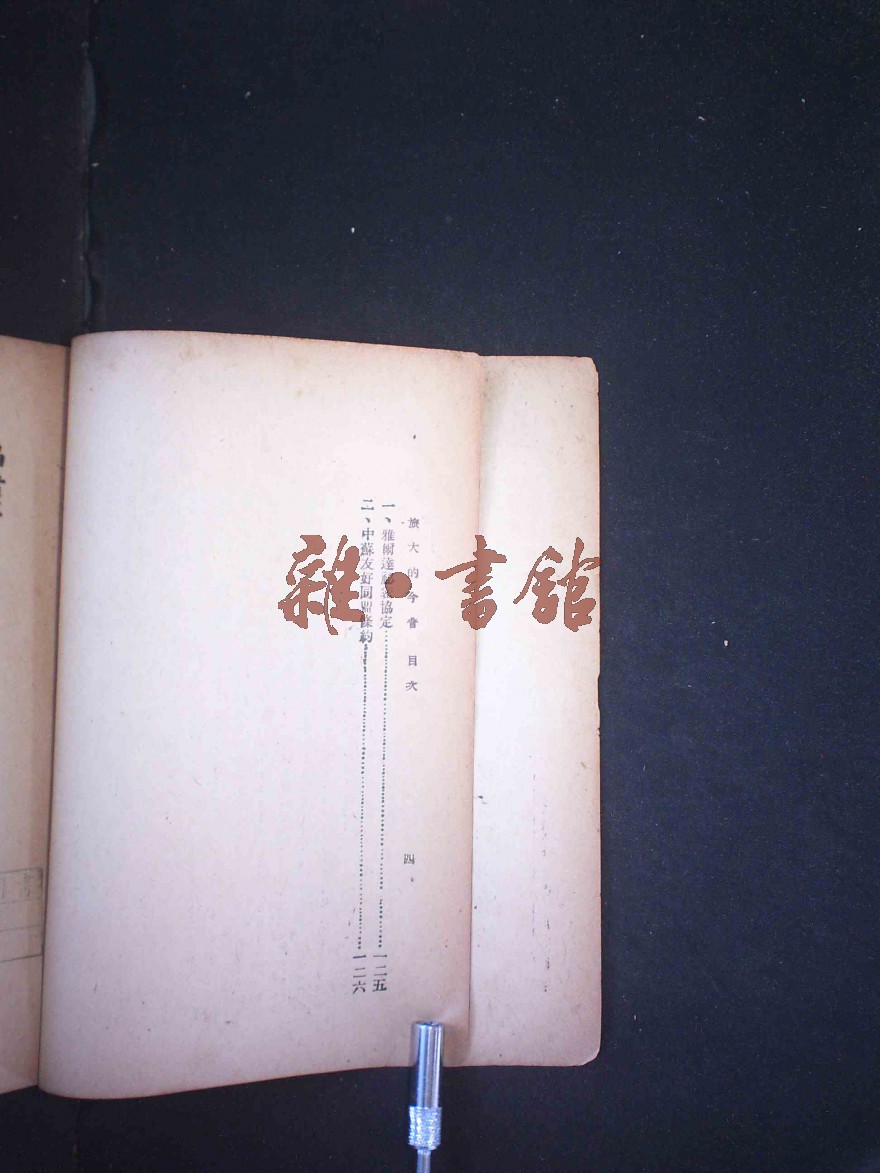 旅大的今昔 目次 四
一、雅爾達秘密協定 一二五
二、中蘇友好同盟條約 一二六
雜·書館